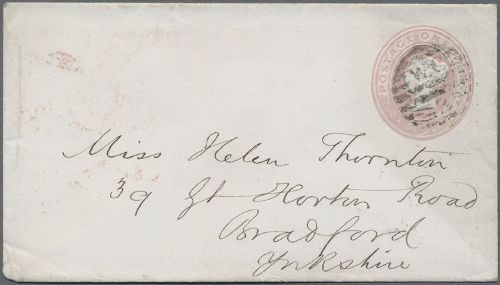 POSTAGE ON
Miss Helen Thornton
39 Gt Horton Road
Bradford
Yrkshire